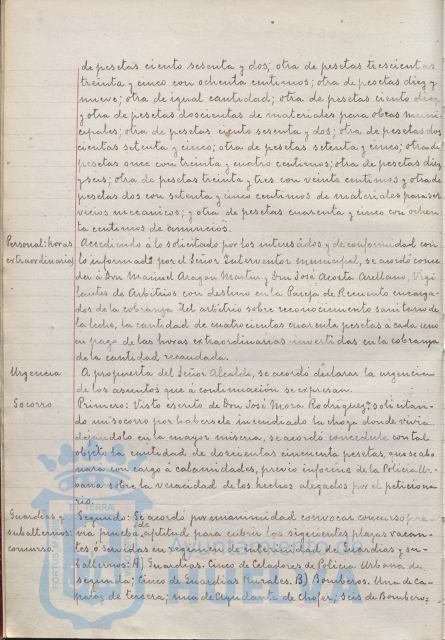 de pesetas ciento sesenta y dos; otra de pesetas trescientas
treinta y cinco con ochenta centimos; otra de pesetas diez y
nueve; otra de igual cantidad; otra de pesetas ciento diez
y otra de pesetas doscientas de materiales para obras muni-
cipales; otra de pesetas ciento sesenta y dos; otra de pesetas dos
cientas setenta y cinco; otra de pesetas setenta y cinco; otra de
pesetas once con treinta y cuatro centimos; otra de pesetas diez
y seis; otra de pesetas treinta y tres con veinte centimos y otra de
pesetas dos con setenta y cinco centimos de materiales para ser-
vicios mecanicos; y otra de pesetas cuarenta y cinco con ochen
ta centimos de anuncios.
Personal: horas
extraordinarias
Accediendo á lo solicitado por los interesados y de conformidad con
lo informado por el Señor Interventor municipal, se acordó conce
der á Don Manuel Aragon Martin y Don José Acosta Arellano, Vigi
lantes de Arbitrios con destino en la Pareja de Recuento encarga
dos de la cobranza del arbitrio sobre reconocimiento sanitario de
la leche, la cantidad de cuatrocientas cuarenta pesetas á cada uno
en pago de las horas extraordinarias invertidas en la cobranza
de la cantidad recaudada.
Urgencia
A propuesta del Señor Alcalde, se acordó declarar la urgencia
de los asuntos que á continuación se expresan.
Socorro
Primero: Visto escrito de Don José Mora Rodriguez, solicitan-
do un socorro por habersele incendiado la choza donde vivia
dejandolo en la mayor miseria, se acordó concederle con tal
objeto la cantidad de doscientas cincuenta pesetas, que se abo
nará con cargo á calamidades, previo informe de la Policia Ur-
bana sobre la veracidad de los hechos alegados por el peticiona
rio.
Guardias y
subalternos:
concurso.
Segundo: Se acordó por unanimidad convocar concurso pre-
via prueba de aptitud para cubrir las siguientes plazas vacan-
tes ó servidas en regimen de interinidad de Guardias y su-
balternos: A) Guardias. Cinco de Celadores de Policia Urbana de
segunda; cinco de Guardias Rurales. B) Bomberos. Una de Ca-
pataz de tercera; una de Ayudante de Chofer, seis de Bombero-